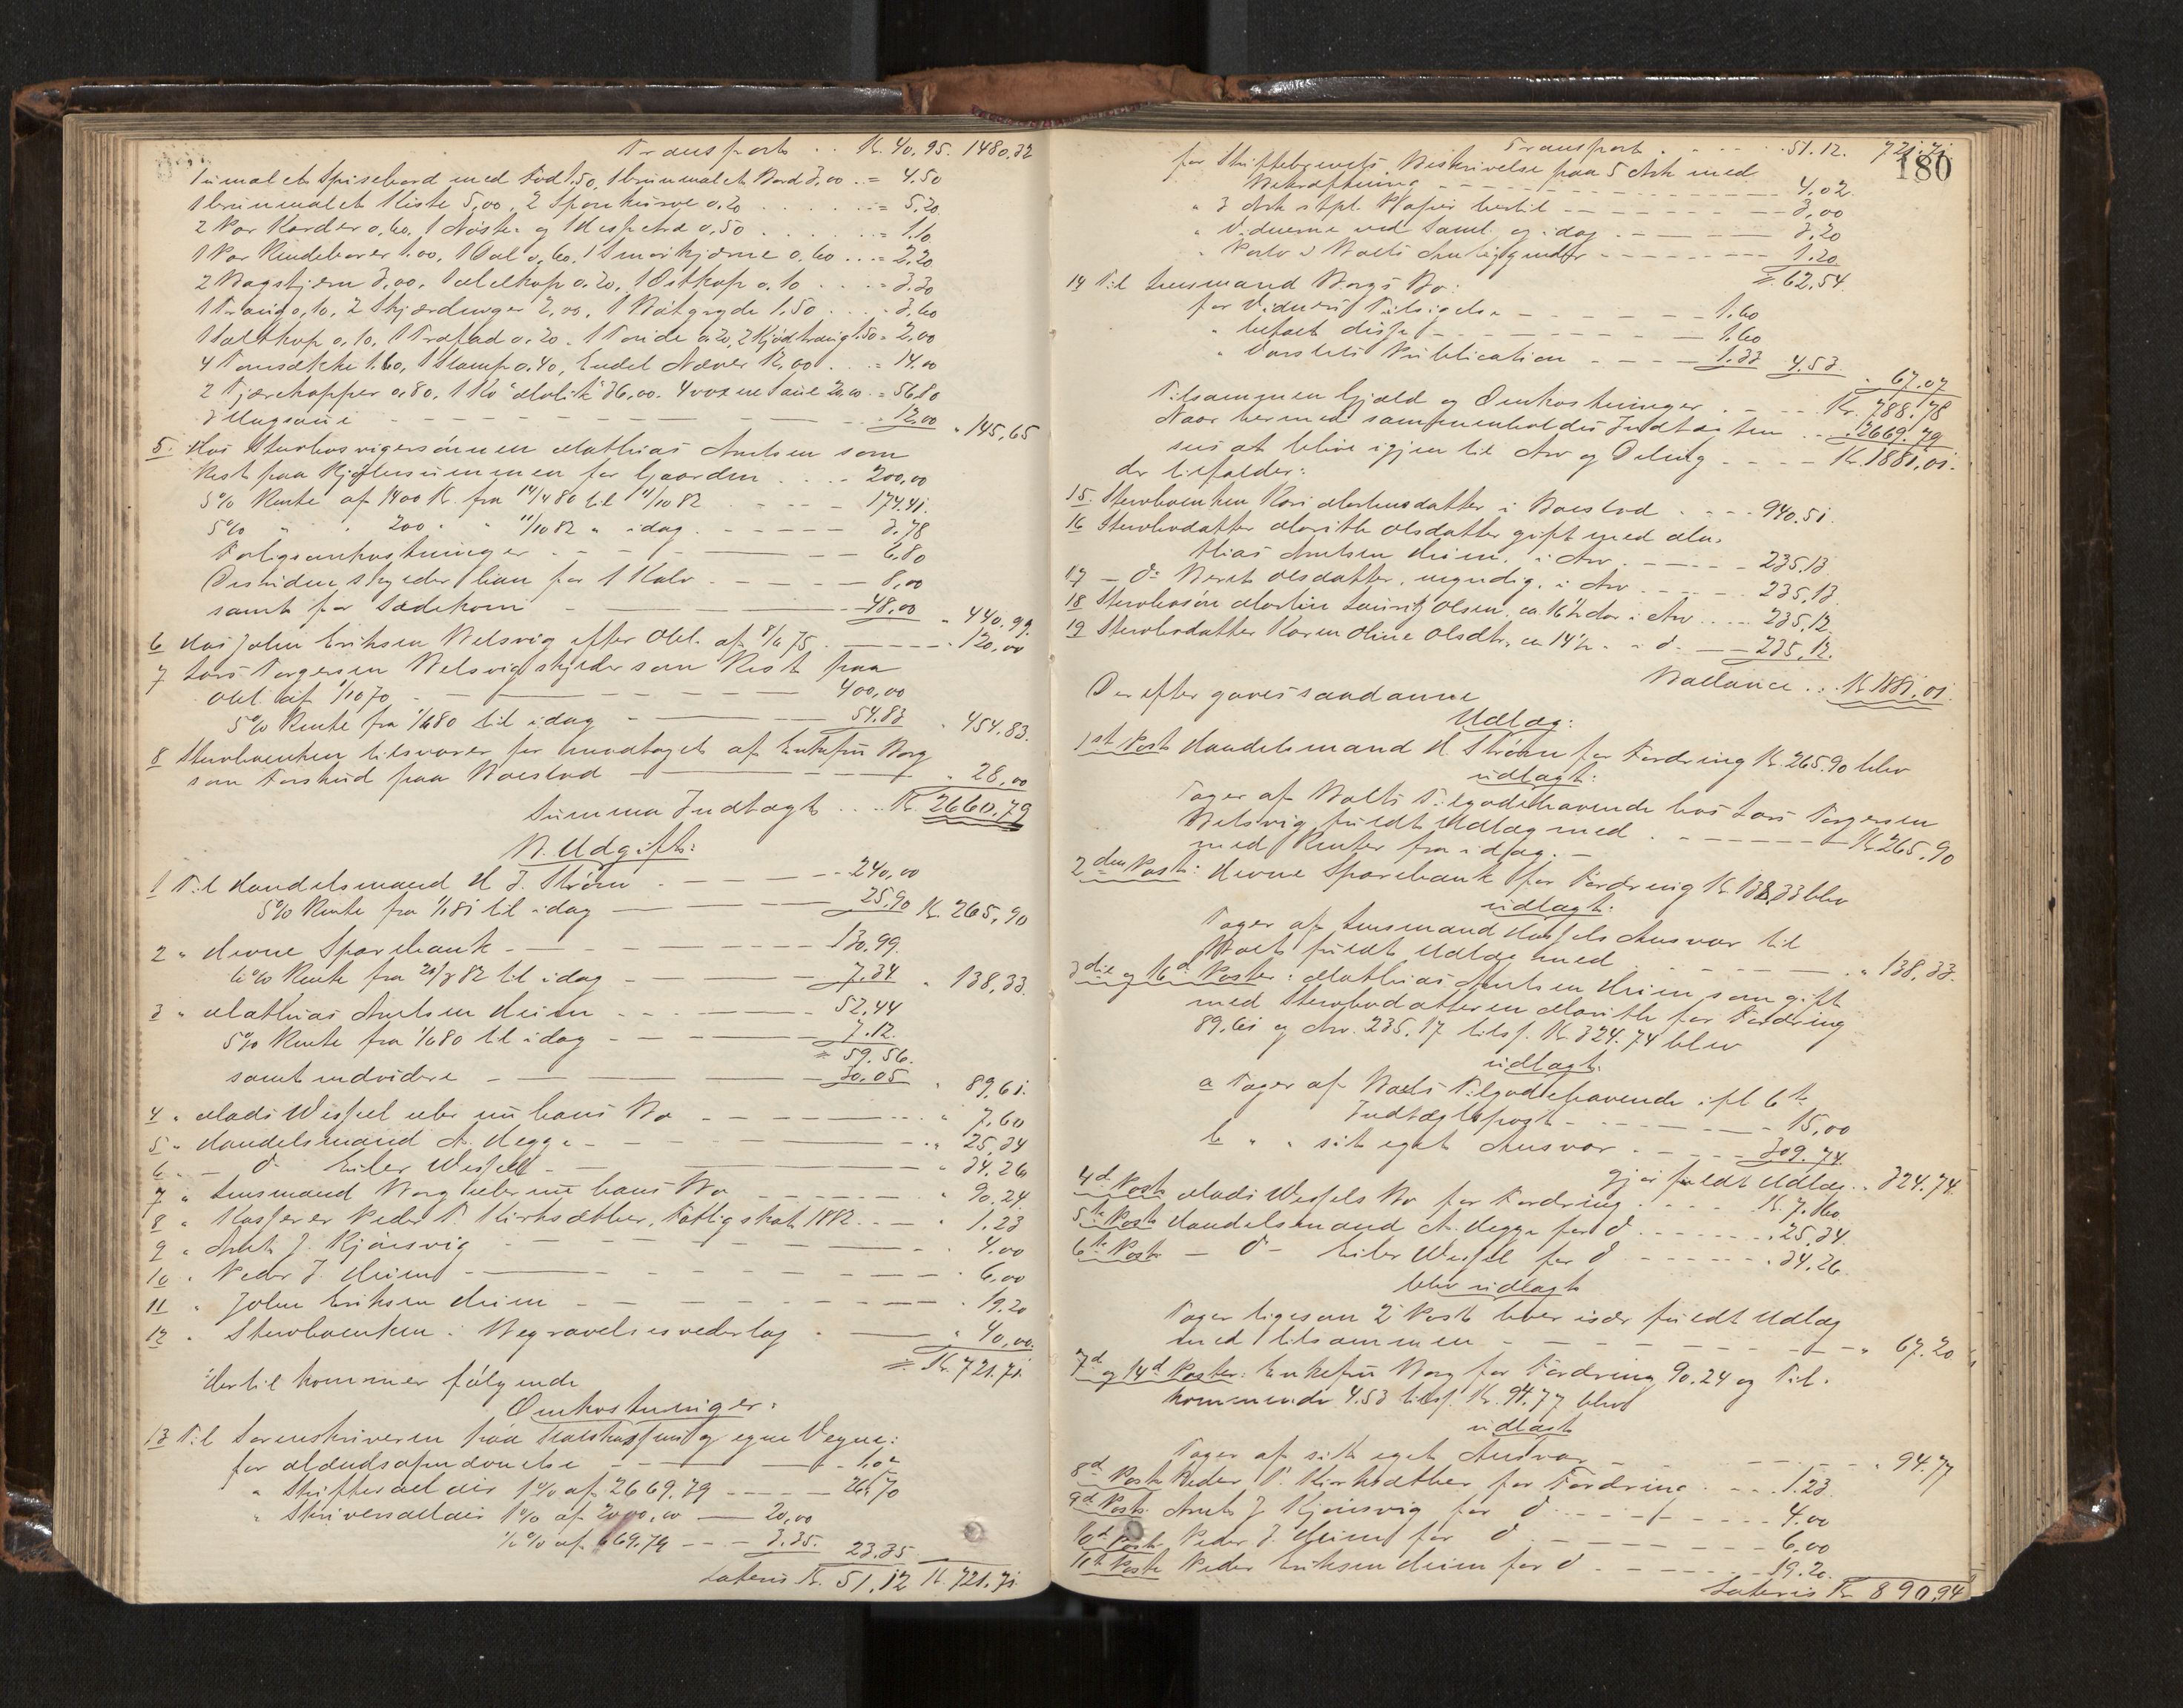 Transport . . K. 40,95. 1480,32
1 umalet Spisebord med Fod 1.50, 1 brunmalet Bord 3,00 . = 4,50
1 brunmalet Kiste 5,00, 2 Sponkurve 0,20 . . . = 5,20
2 Par Karder 0,60, 1 Nøste og 1 Hespetræ 0,50 . . . = 1.10
1 Par 1.00, 1 0,60, 1 Smørkjærne 0,60 . . . = 2,20
2 3,00, 1 0,20, 1 Ostkop 0,10 . . . = 3.30
1 0,10, 2 2,00, 1 1,50 . . . 3,60
1 Saltkop 0,10, 1 Træfad 0,20, 1 0,20, 2 1.50 = 2,00
4 1.60, 1 Stamp 0,40, Endel Næver 12,00 . . = 14,00
2 Tjærekopper 0,80, 1 Ko 36,00, 4 voxne Saue 20,00 = 56,80
3 Ungsaue 12,00 " 145,65
5. Hos Sterbosvigersønnen Mathias Arntsen som
Rest paa Kjøbesummen for Gaarden . . . . 200,00
5% Rente af 1400 K. fra 14/4 80 til 11/10 82 - - - 174.41
5% " " 200 " " 11/10 82 " idag - - - 3.78
Forligsomkostninger - - - 6,80
Desuden skylder han for 1 Kalv - - - 8,00
samt for Sædekorn - - - 48,00 " 440.99
6 Hos John Eriksen Belsvig efter Obl. af 8/6 75 - - - 120,00
7 Lars Torgersen Belsvig skylder som Rest paa
Obl. af 1/10 70 - - - 400,00
5% Rente fra 1/6 80 til idag - - - 54.83 " 454,83.
8 Sterboenken tilsvarer for modtaget af Enkefru Borg
som Forskud paa Boeslod - - - " 28,00
Summa Indtægt . . . K. 2669,79
B. Udgift:
1 Til Handelsmand H J. Strøm - - - 240,00
5% Rente fra 1/1 81 til idag - - - 25,90 K. 265,90
2 " Hevne Sparebank - - - 130,99.
6% Rente fra 20/3 82 til idag - 7.34 " 138,33.
3 " Mathias Arntsen Heim - - - 52,44
5% Rente fra 1/6 80 til idag - - - 7.12.
= 59.56.
samt endvidere - - - 30,05 " 89,61.
4 " Mads Wessel eller nu hans Bo - - - " 7,60
5 " Handelsmand A. Hegge - - - " 25,34
6 " - do - Eiler Wessel - - - " 34.26
7 " Lensmand Borg eller nu hans Bo - - - " 90,24
8 " Kasserer Peder P. Kirksæther, Fattigskat 1882 - - - " 1.23
9 " Arnt J. Kjønsvig - - - 4.00
10 " Peder J. Heim - - - 6,00
11 " John Eriksen Heim - - - 19.20
12 " Sterboenken i Begravelsesvederlag - - - " 40,00.
= K. 721.71
Hertil kommer følgende
Omkostninger:
13 Til Sorenskriveren paa Statskassens og egne Vegne:
for - - - 1.07
" af 2669.79 - - - 26,70
" 1% af 2000,00 - 20,00
1/2% af 669.79 - - - 3.35. 23.35
Lateris K. 51,12 K. 721.71
180
Transport . . . . 51.12. 721.71
for Skiftebrevets Beskrivelse paa 5 Ark med
Bekræftning - - - 4.02.
" 3 Ark stpl. Papir hertil - - - 3,00
" Vidnerne ved Saml. og idag - - - 3,20
" Porto i Boets Anliggender - - - 1.20
= 62,54.
14 Til Lensmand Borgs Bo:
for Vidners Tilsigelse - - - 1.60
" - - - 1.60
" Publication - - - 1.33 4,53. " 67.07
Tilsammen Gjæld og Omkostninger . . . K. 788.78
Naar hermed sammenholdes Indtægten . . . 2669.79
sees at blive igjen til Arv og Deling - - - K. 1881,01.
der tilfalder:
15. Sterboenken Kari i Boeslod . . . 940.51.
16 Sterbodatter Marith Olsdatter gift med Ma-
thias Arntsen Heim, i Arv - - - 235,13
17 - do Berit Olsdatter, myndig, i Arv - - - 235,13
18 Sterbosøn Martin Laurits Olsen ca 16 1/2 Aar i Arv . . . 235,12
19 Sterbodatter Karen Oline Olsdtr. ca 14 1/2 " - do. - 235,12.
Ballance . . K. 1881,01.
Derefter gaves saadanne
Udlæg:
1ste Post Handelsmand H. Strøm for Fordring K. 265.90 blev
udlagt:
Tager af Boets Tilgodehavende hos Lars Torgersen
Belsvig fuldt Udlæg med . - - - K. 265,90
med Renter fra idag. -
2den Post: Hevne Sparebank for Fordring K. 138,33 blev
udlagt:
Tager af Lensmand Ansvar til
Boet fuldt Udlæg med - - - " 138,33.
3die og 16de Poster: Mathias Arntsen Heim som gift
med Sterbodatteren Marith for Fordring
89,61 og Arv 235.13 tils. K. 324.74 blev
udlagt:
a Tager af Boets Tilgodehavende ifl 6te
Indtægtspost - - - 15,00
b " " sit eget Ansvar - - - 309.74.
gjør fuldt Udlæg . . 324.74.
4de Post Mads Wessels Bo for Fordring . . . K. 7.60
5te Post Handelsmand A. Hegge for do - - - 25,34.
6te Post - do - Eiler Wessel for do - - - 34.26.
blev udlagt
Tager ligesom 2 Post hver især fuldt Udlæg
med tilsammen - - - " 67.20
7de og 14de Poster: Enkefru Borg for Fordring 90.24 og Til-
kommende 4.53 tils. K. 94.77 blev
udlagt
Tager af sit eget Ansvar - - - " 94.77
8de Post Peder P. Kirksæther for Fordring . . . 1.23.
9de Post: Arnt J Kjønsvig for do - - - 4.00
10de Post: Peder J. Heim for do - - - 6.00
11te Post Peder Eriksen Heim for do - - - 19.20.
Lateris K. 890,94